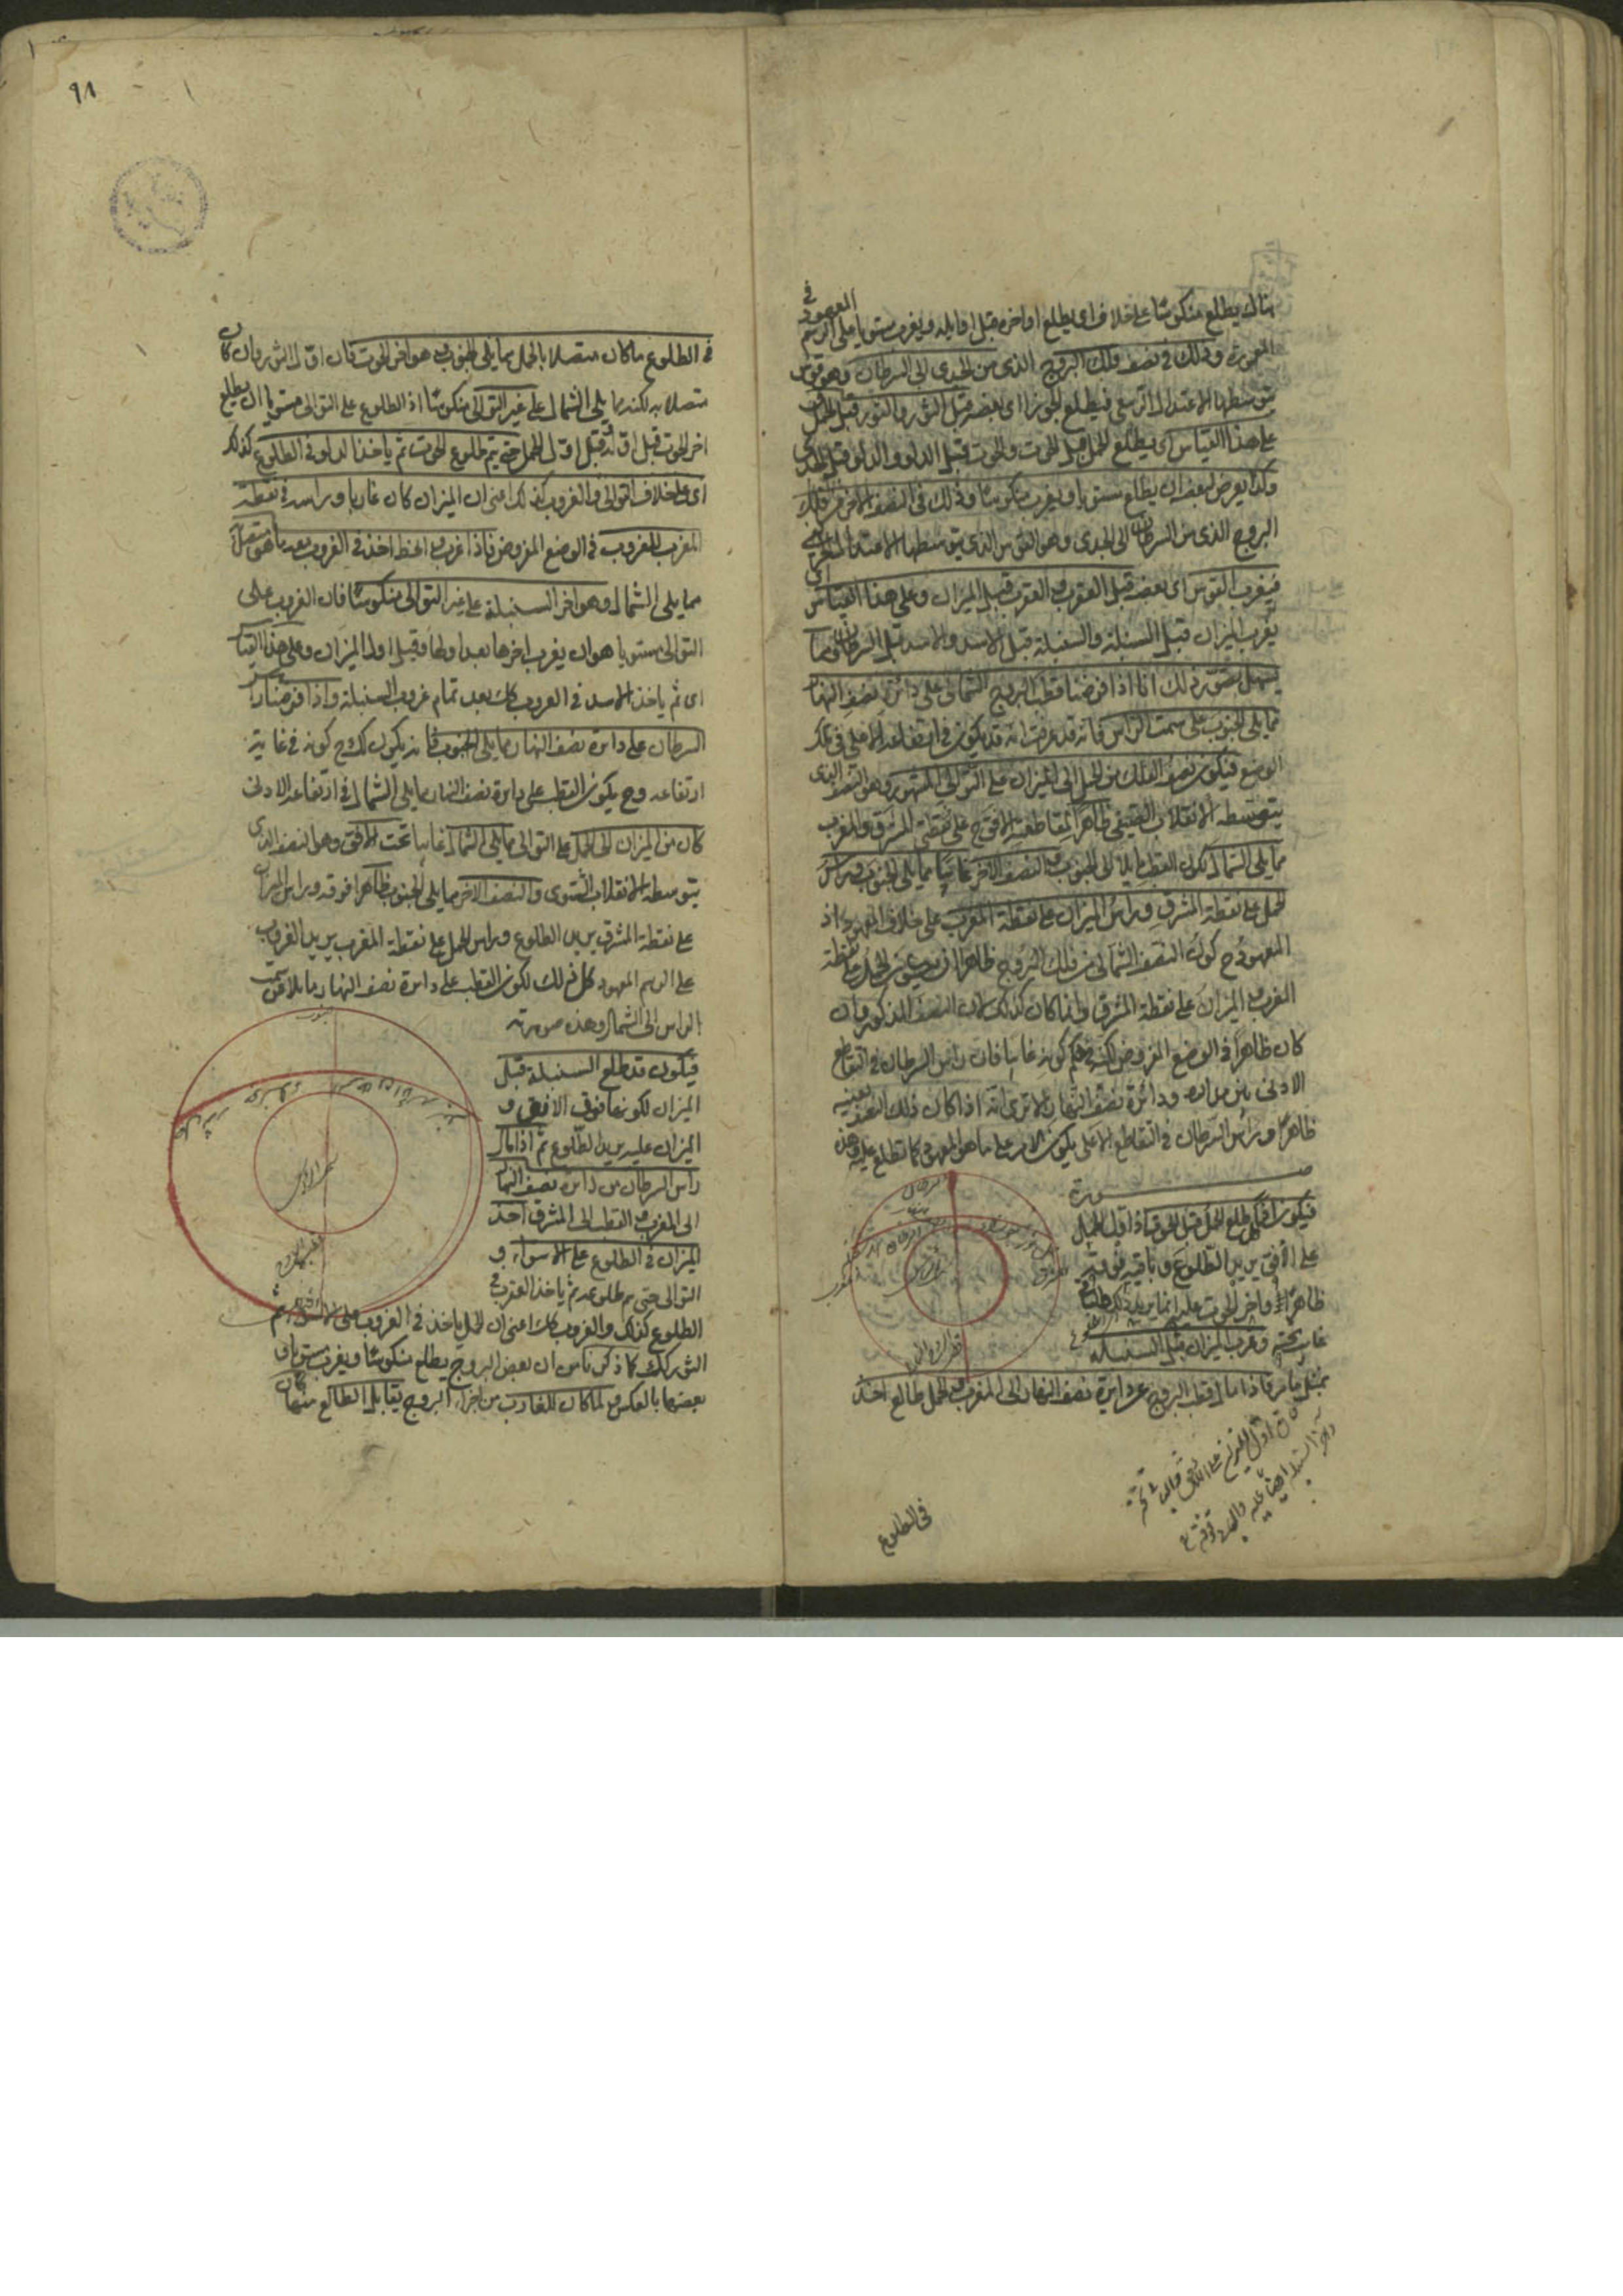 هناك يطلع منكوسا على خلاف اي يطلع اواخره قبل اوايله ويغرب مستويا على الرسم
المعهود في
المعمورة وذلك في نصف فلك البروج الذي من الجدي الى السرطان وهو قوس
يتوسطها الاعتدال الربيعي فيطلع الجوزا اي بعضه قبل الثور والثور قبل الحمل
على هذا القياس اي يطلع الحمل قبل الحوت والحوت قبل الدلو والدلو قبل الجدي
وكذا يعرض لبعضه ان يطلع مستويا ويغرب منكوسا وذلك في النصف الاخر من فلك
البروج الذي من السرطان الى الجدي وهو القوس الذي يتوسطها الاعتدال الخريفي
فيغرب القوس اي بعضه قبل العقرب والعقرب قبل الميزان وعلى هذا القياس اي
يغرب الميزان قبل السنبلة والسنبلة قبل الاسد والاسد قبل السرطان ومما
يسهل تصور ذلك انا اذا فرضنا قطب البروج الشمالي على دائرة نصف النهار
مما يلي الجنوب على سمت الراس فانه قد عرفت انه قد يكون في ارتفاعه الاعلى في تلك
الوضع فيكون نصف الفلك من الحمل الى الميزان على التوالي المشهور وهو النصف الذي
يتوسطه الانقلاب الصيفي ظاهرا لمقاطعته الافق ح على نقطتي المشرق والمغرب
مما يلي الشمال لكون القطب مايلا الى الجنوب والنصف الاخر غايبا مما يلي الجنوب وراس
الحمل على نقطة المشرق وراس الميزان على نقطة المغرب على خلاف المعهود اذ
المعهود ح كون النصف الشمالي من فلك البروج ظاهرا ان يكون الحمل على نقطة
المغرب والميزان على نقطة المشرق وانما كان كذلك لان النصف المذكور وان
كان ظاهرا في الوضع المفروض لكنه في حكم كونه غايبا فان راس السرطان في التقاطع
الادنى بين مداره ودائرة نصف النهار الا ترى انه اذا كان ذلك النصف بعينه
ظاهرا وراس السرطان في التقاطع الاعلى يكون الامر على ما هو المعهود كما تطلع عليه وهذه
صورته
فيكون قد طلع الحمل قبل الحوت اذ اول الحمل
على الافق يريد الطلوع وباقيه فوقه
ظاهرا واخر الحوت عليه
غايب تحته وغرب الميزان قبل السنبلة
بمثل ما مر فاذا مال قطب البروج عن دايرة نصف النهار الى المغرب والحمل طالع اخذ
في الطلوع
٩٨
في الطلوع ما كان متصلا بالحمل مما يلي الجنوب وهو اخر الحوت فان اول الثور وان كان
متصلا به لكنه مما يلي الشمال على غير التوالي منكوسا اذ الطلوع على التوالي مستويا ان يطلع
اخر الحوت قبل اوله قبل اول الحمل حتى يتم طلوع الحوت ثم ياخذ الدلو في الطلوع كذلك
اي على خلاف التوالي والغروب كذلك اعني ان الميزان كان غاربا وراسه في نقطة
المغرب للغروب في الوضع المفروض فاذا غرب وانحط اخذ في الغروب بعده ما هو متصل
مما يلي الشمال وهو اخر السنبلة على غير التوالي منكوسا فان الغروب على
التوالي مستويا هو ان يغرب اخرها بعد اولها وقبل اول الميزان وعلى هذا القياس
اي ثم ياخذ الاسد في الغروب كك بعد تمام غروب السنبلة واذا فرضنا راس
السرطان على دايرة نصف النهار مما يلي الجنوب فانه يكون كك ح كونه في غاية
ارتفاعه وح يكون القطب على دايرة نصف النهار مما يلي الشمال في ارتفاعه الادنى
كان من الميزان الى الحمل على التوالي مما يلي الشمال غايبا تحت الافق وهو النصف الذي
يتوسطه الانقلاب الشتوي والنصف الاخر مما يلي الجنوب ظاهرا فوقه وراس الميزان
على نقطة المشرق يريد الطلوع وراس الحمل على نقطة المغرب يريد الغروب
على الرسم المعهود كل ذلك لكون القطب على دايرة نصف النهار مايلا عن سمت
الراس الى الشمال وهذه صورته
جنوب
سمت الراس
فيكون قد طلع السنبلة قبل
الميزان لكونها فوق الافق و
الميزان عليه يريد الطلوع ثم اذا مال
راس السرطان من دايرة نصف النهار
الى المغرب والقطب الى المشرق اخذ
الميزان في الطلوع على الاستواء و
التوالي حتى يتم طلوعه ثم ياخذ العقرب في
الطلوع كذلك والغروب كك اعني ان الحمل ياخذ في الغروب على الاستواء ثم
الثور كك كما ذكرناه من ان بعض البروج يطلع منكوسا ويغرب مستويا و
بعضها بالعكس ولما كان للغارب من اجزاء البروج يقابل الطالع منها كان